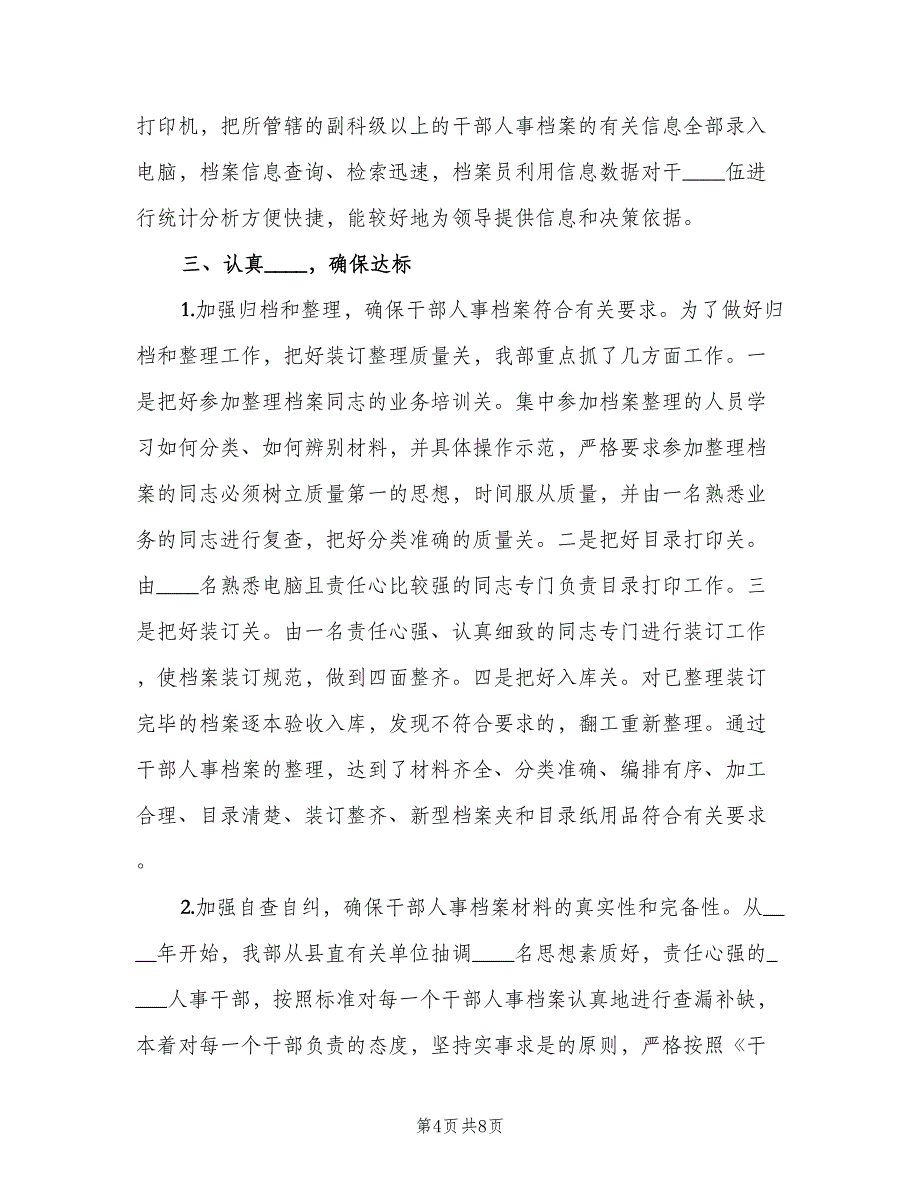 打印机，把所管辖的副科级以上的干部人事档案的有关信息全部录入
电脑，档案信息查询、检索迅速，档案员利用信息数据对干____伍进
行统计分析方便快捷，能较好地为领导提供信息和决策依据。
三、认真____，确保达标
1.加强归档和整理，确保干部人事档案符合有关要求。为了做好归
档和整理工作，把好装订整理质量关，我部重点抓了几方面工作。一
是把好参加整理档案同志的业务培训关。集中参加档案整理的人员学
习如何分类、如何辨别材料，并具体操作示范，严格要求参加整理档
案的同志必须树立质量第一的思想，时间服从质量，并由一名熟悉业
务的同志进行复查，把好分类准确的质量关。二是把好目录打印关。
由____名熟悉电脑且责任心比较强的同志专门负责目录打印工作。三
是把好装订关。由一名责任心强、认真细致的同志专门进行装订工作
，使档案装订规范，做到四面整齐。四是把好入库关。对已整理装订
完毕的档案逐本验收入库，发现不符合要求的，翻工重新整理。通过
干部人事档案的整理，达到了材料齐全、分类准确、编排有序、加工
合理、目录清楚、装订整齐、新型档案夹和目录纸用品符合有关要求
。
2.加强自查自纠，确保干部人事档案材料的真实性和完备性。从__
__年开始，我部从县直有关单位抽调____名思想素质好，责任心强的_
___人事干部，按照标准对每一个干部人事档案认真地进行查漏补缺，
本着对每一个干部负责的态度，坚持实事求是的原则，严格按照《干
第4页 共8页